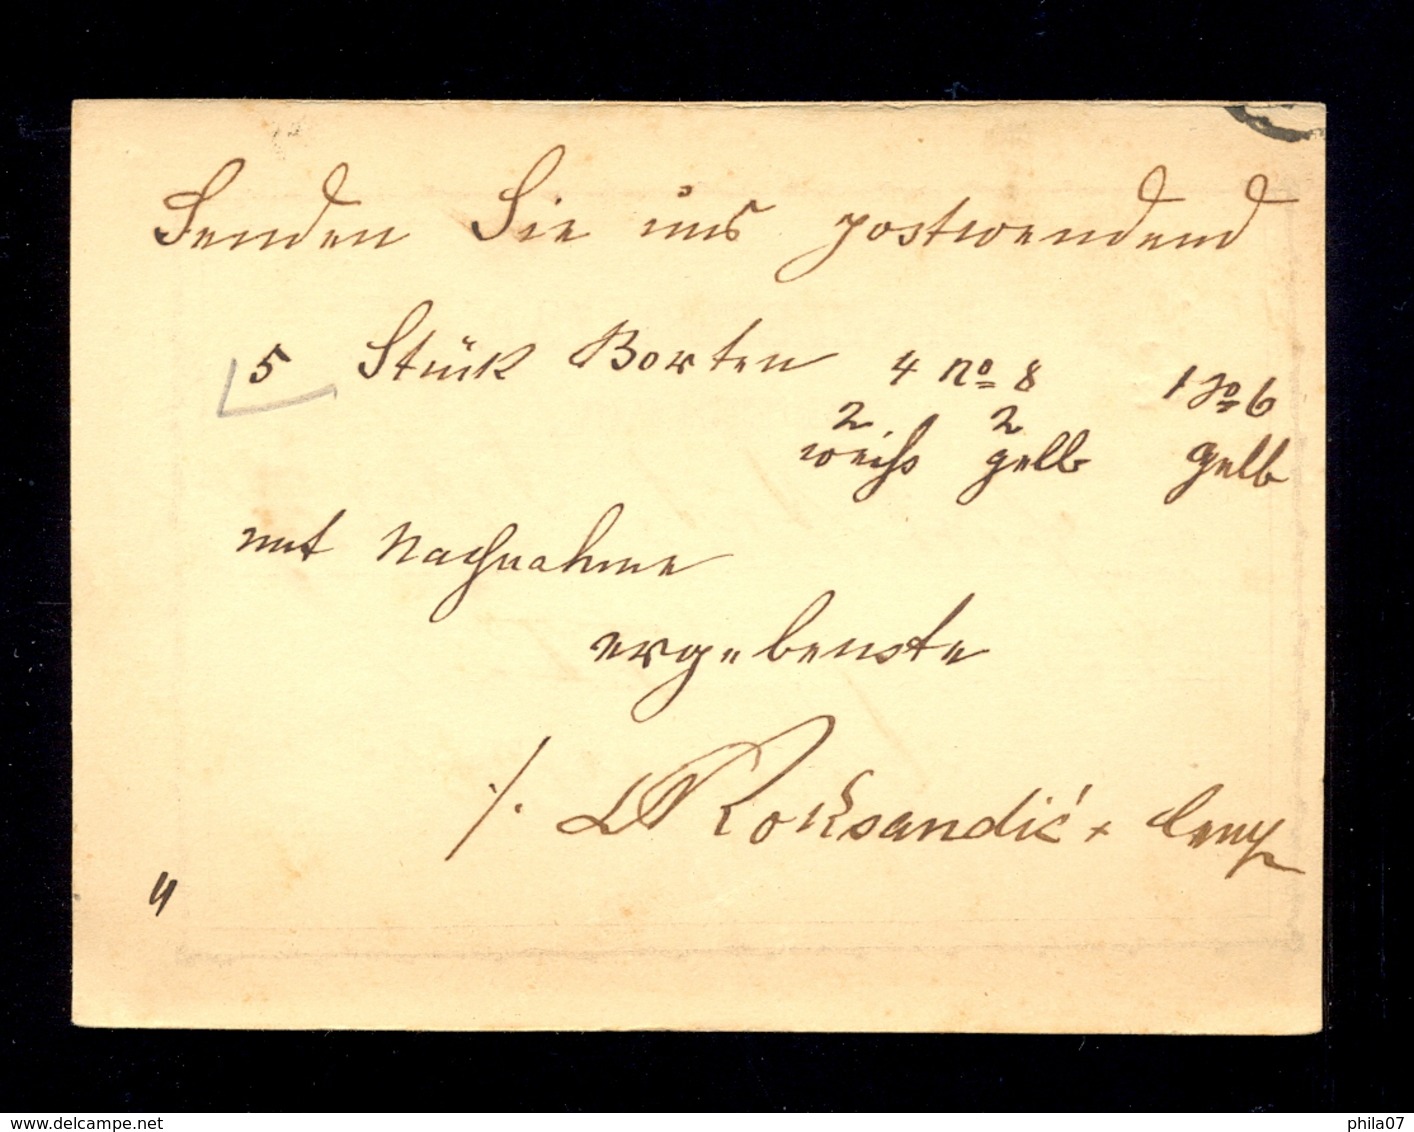 Senden Sie uns postwendend
5 Stück Borten 4 No 8 1 No 6
2 2
weiss gelb gelb
mit Nachnahme
ergebenste
Roksandić +
delcampe.net
phila07